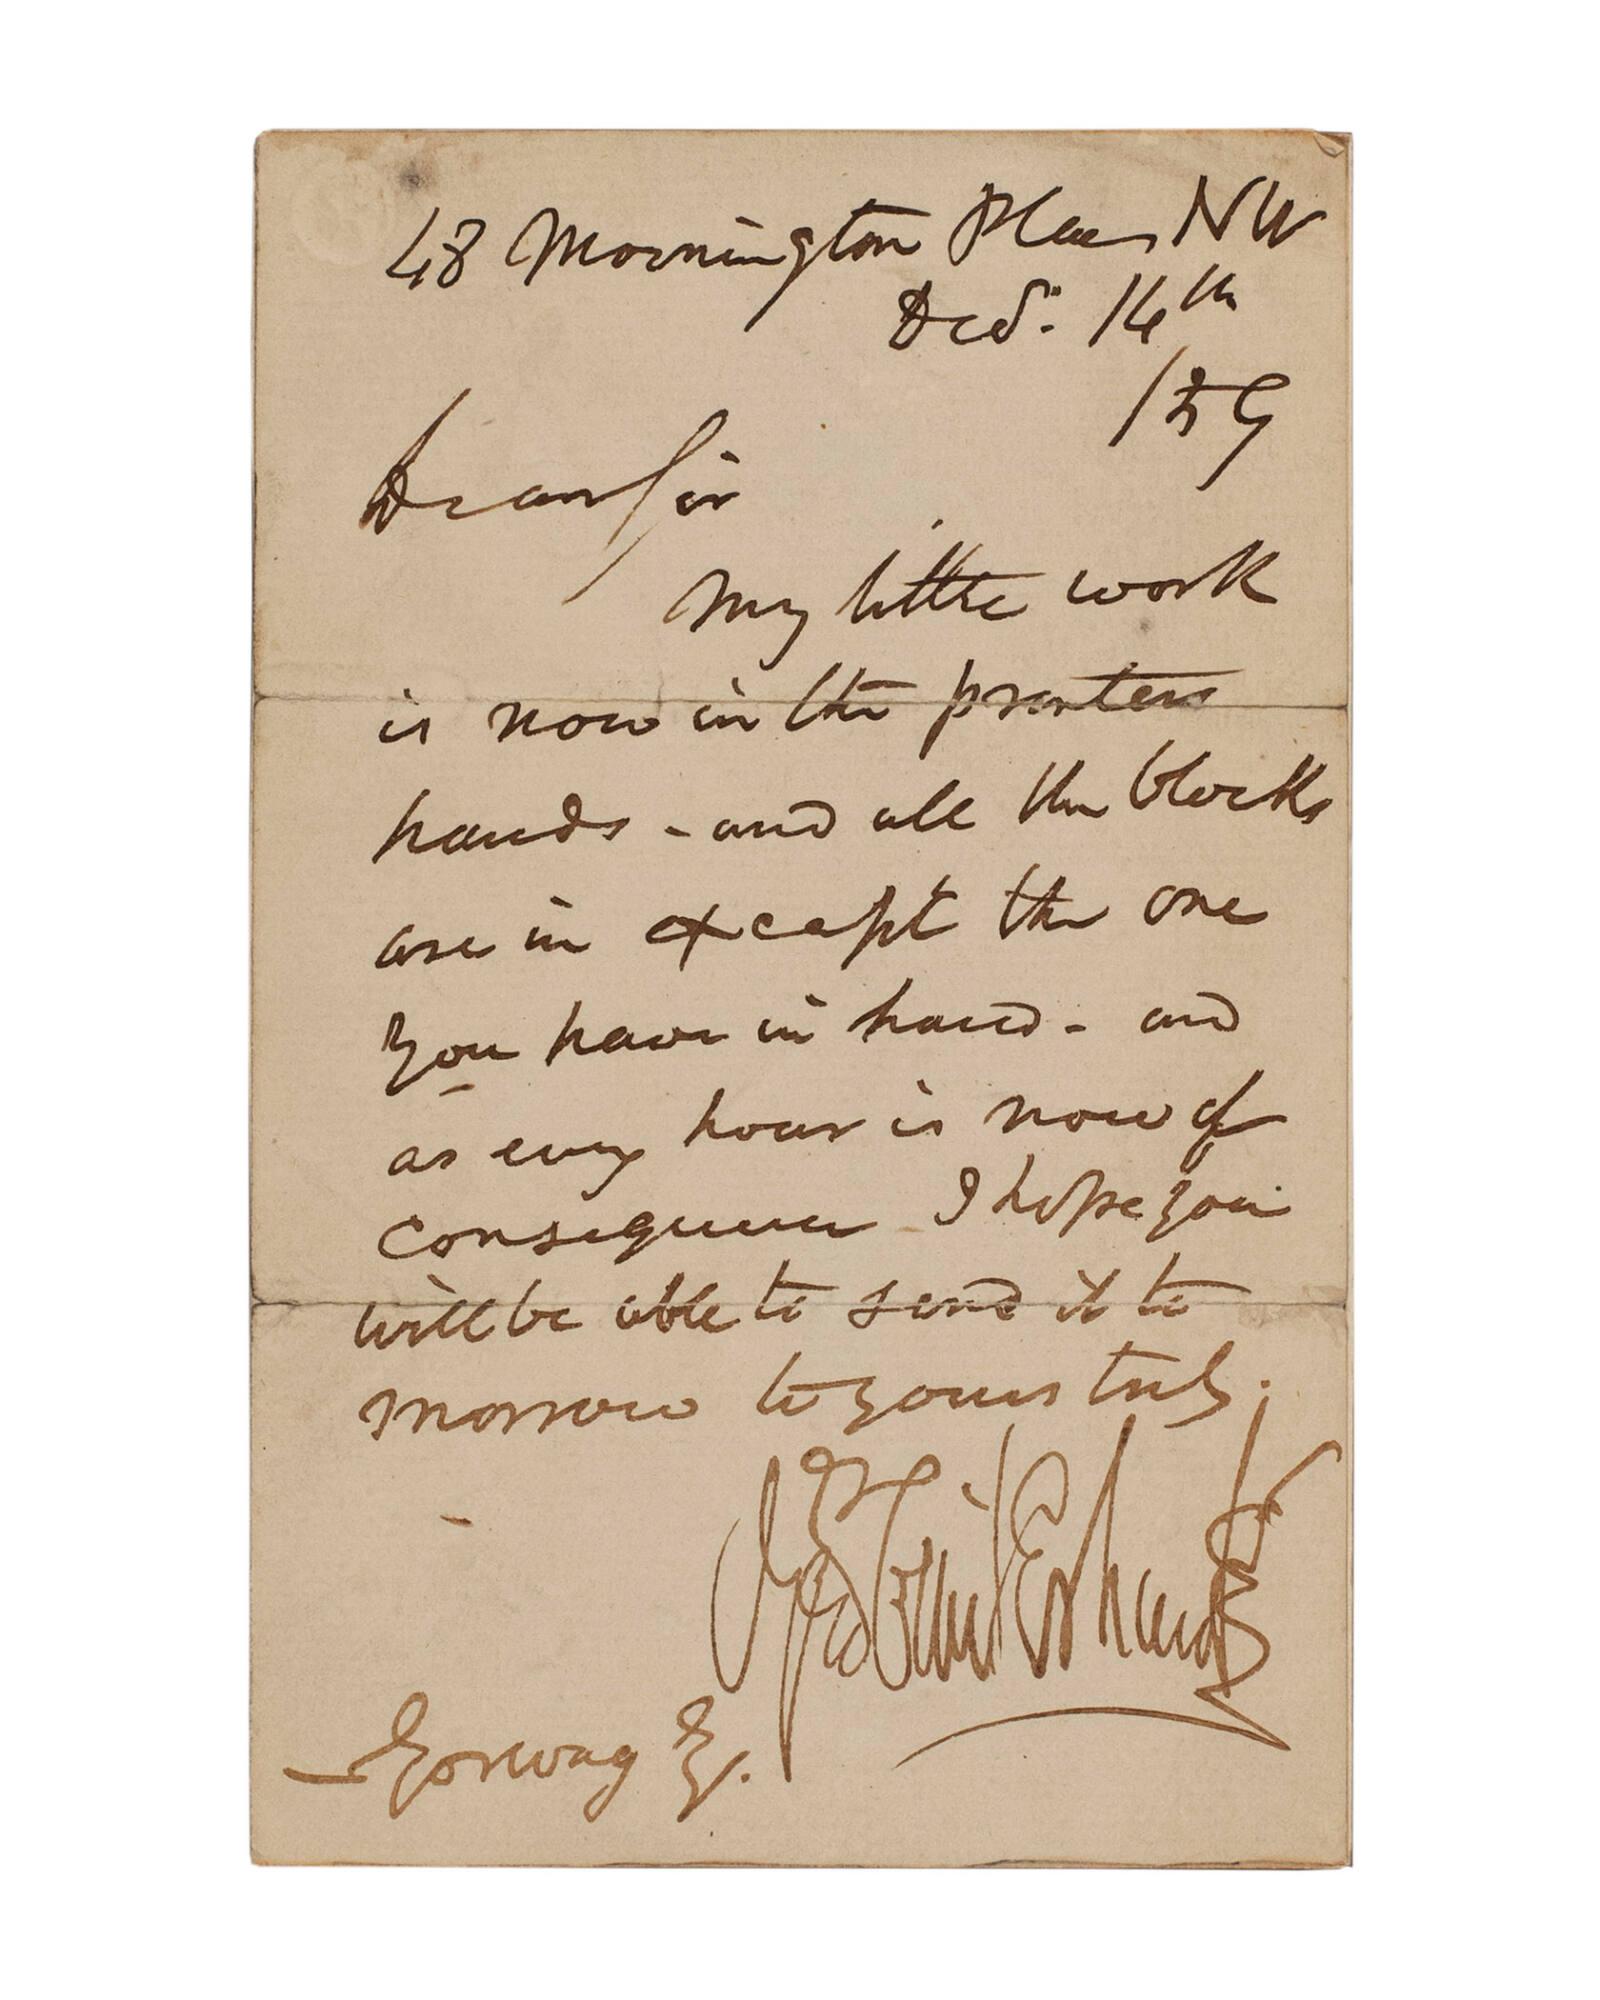 48 Mornington Place NW
Decr. 14th
/59
Dear Sir
My little work
is now in the printers
hands - and all the blocks
are in except the one
you have in hand - and
as every hour is now of
consequence I hope you
will be able to send it to
morrow to yours truly.
Geo Cruikshank